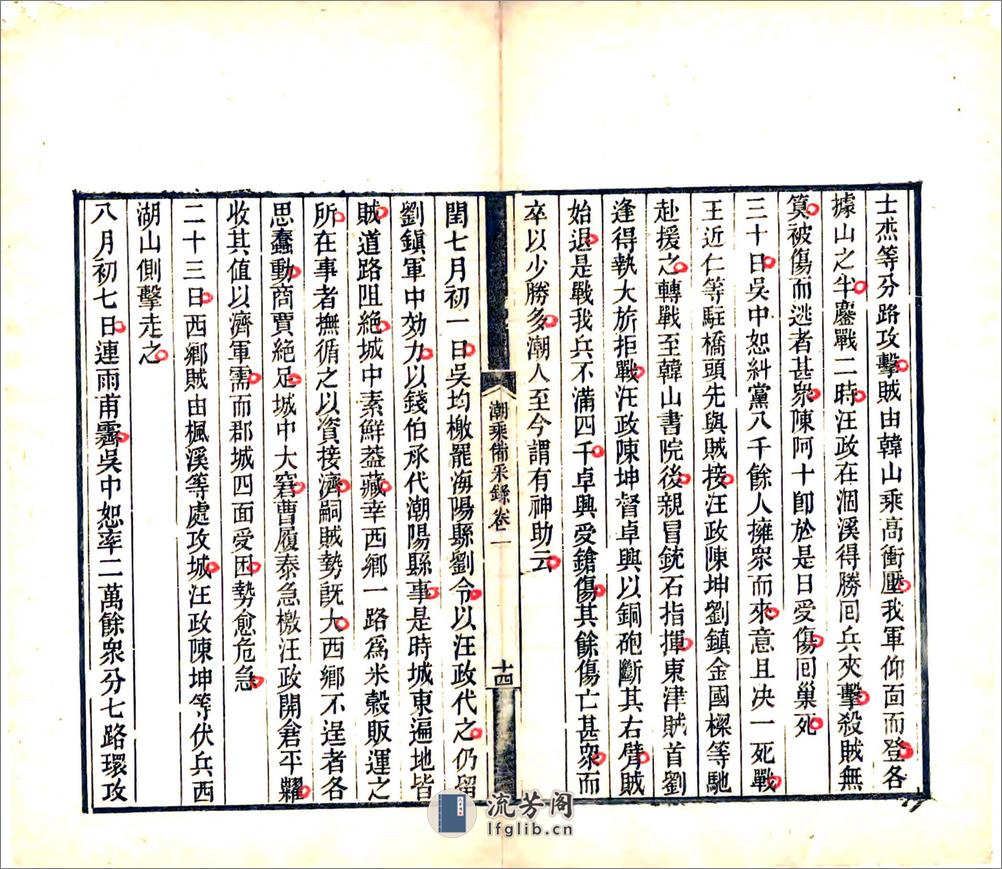 士杰等分路攻擊賊由韓山乘高衝壓我軍仰面而登各
據山之半鏖戰二時汪政在涸溪得勝回兵夾擊殺賊無
筭被傷而逃者甚衆陳阿十卽於是日受傷囘巢死
三十日吳中恕糾黨八千餘人擁衆而來意且决一死戰
王近仁等駐橋頭先與賊接汪政陳坤劉鎮金國樑等馳
赴援之轉戰至韓山書院後親冒銃石指揮東津賊首劉
逢得執大旂拒戰汪政陳坤督卓興以銅砲斷其右臂賊
始退是戰我兵不滿四千卓興受鎗傷其餘傷亡甚衆而
卒以少勝多潮人至今謂有神助云
潮乘備采錄卷一
十四
閏七月初一日吳均檄罷海陽縣劉令以汪政代之仍留
劉鎮軍中効力以錢伯承代潮陽縣事是時城東遍地皆
賊道路阻絶城中素鮮葢藏幸西鄉一路爲米穀販運之
所在事者撫循之以資接濟嗣賊勢旣大西鄉不逞者各
思蠢動商賈絶足城中大窘曹履泰急檄汪政開倉平糶
收其值以濟軍需而郡城四面受困勢愈危急
二十三日西鄉賊由楓溪等處攻城汪政陳坤等伏兵西
湖山側擊走之
八月初七日連雨甫霽吳中恕率二萬餘衆分七路環攻
流芳阁
lfglib.cn